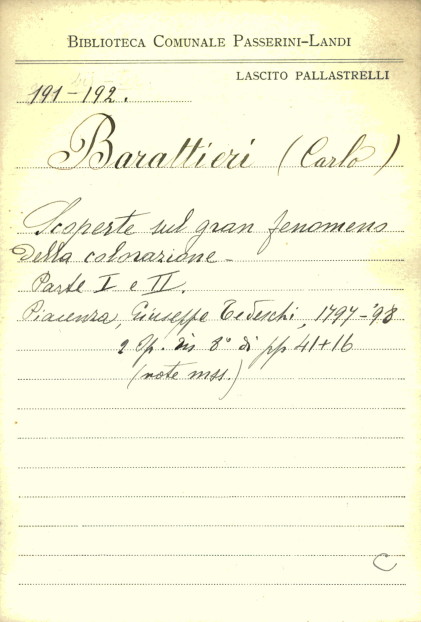 BIBLIOTECA COMUNALE PASSERINI-LANDI
LASCITO PALLASTRELLI
191-192.
Barattieri (Carlo)
Scoperte sul gran fenomeno
della colorazione -
Parte I e II.
Piacenza, Giuseppe Tedeschi, 1797-'98
2 Op. in 8° di pp 41+16
(note mss.)
C